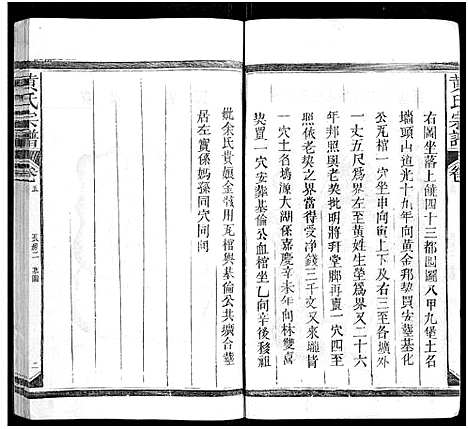 黄氏宗譜
卷
右圖坐落上饒四十三都圖圖八甲九堡土名
墻頭山道光十九年向黃金邦契買安塟基化
公瓦棺一穴坐申向寅上下及右三至各壙外
一丈五尺為界左至黃姓生塋為界又二十六
年邦照與老契批明將拜堂脚再賣一穴四至
照依老契之界當得受净錢三千文又來壠背
一穴土名塲源大湖係嘉慶辛未年向林雙喜
契買一穴安塟基倫公血棺坐乙向辛後移祖
妣余氏貴娘金骸用瓦棺與基倫公共壙合塟
居左實係媽孫同穴同向
黄氏宗譜
卷
五
墓圖
二